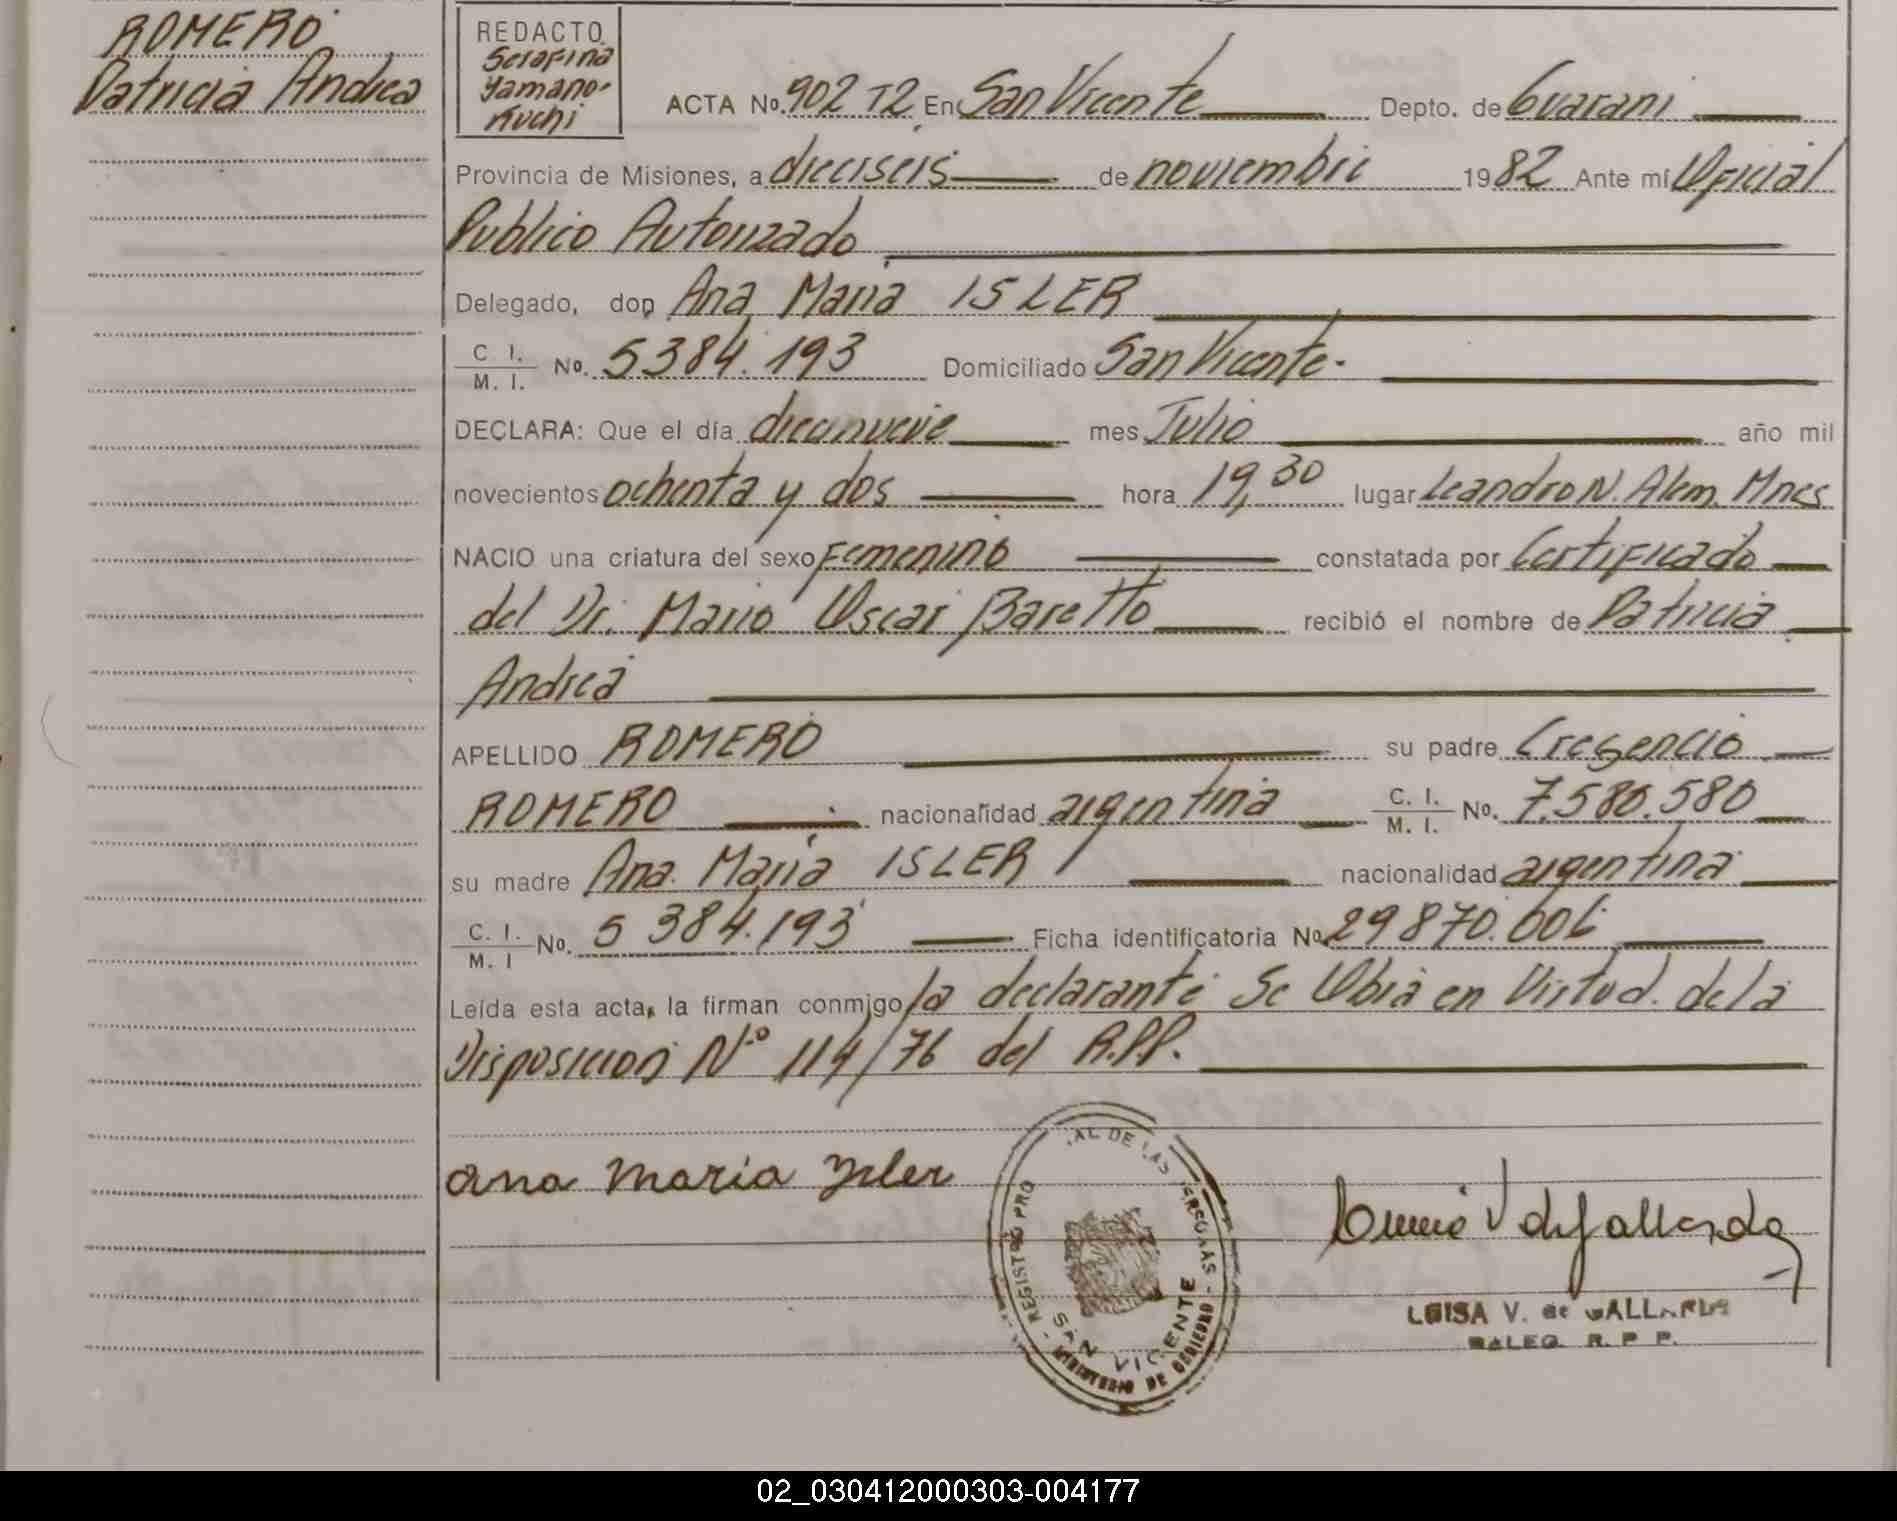 ROMERO
Patricia Andrea
REDACTO
Serafina
Yamano-
Kuchi
ACTA No. 902 T2 En San Vicente Depto. de Guarani
Provincia de Misiones, a dieciseis de noviembre 1982 Ante mí Oficial
Publico Autorizado
Delegado, don Ana Maria ISLER
C. I.
M. I. No. 5384.193 Domiciliado San Vicente.
DECLARA: Que el día diecinueve mes Julio año mil
novecientos ochenta y dos hora 19,30 lugar Leandro N. Alem. Mnes
NACIO una criatura del sexo Femenino constatada por Certificado
del Dr. Mario Oscar Baretto recibió el nombre de Patricia
Andrea
APELLIDO ROMERO su padre Cresencio
ROMERO nacionalidad argentina C. I. M. I. No. 7.580.580
su madre Ana Maria ISLER nacionalidad argentina
C. I. M. I No. 5 384.193 Ficha identificatoria No. 29870.006
Leída esta acta, la firman conmigo la declarante Se Obia en Virtud de la
Disposicion Nº 114/76 del R.P.P.
Ana Maria Isler
REGISTRO PRO AL DE LAS PERSONAS
SAN VICENTE
MINISTERIO DE GOBIERNO
LUISA V. de GALLARDO
DALEG. R. P. P.
02_030412000303-004177